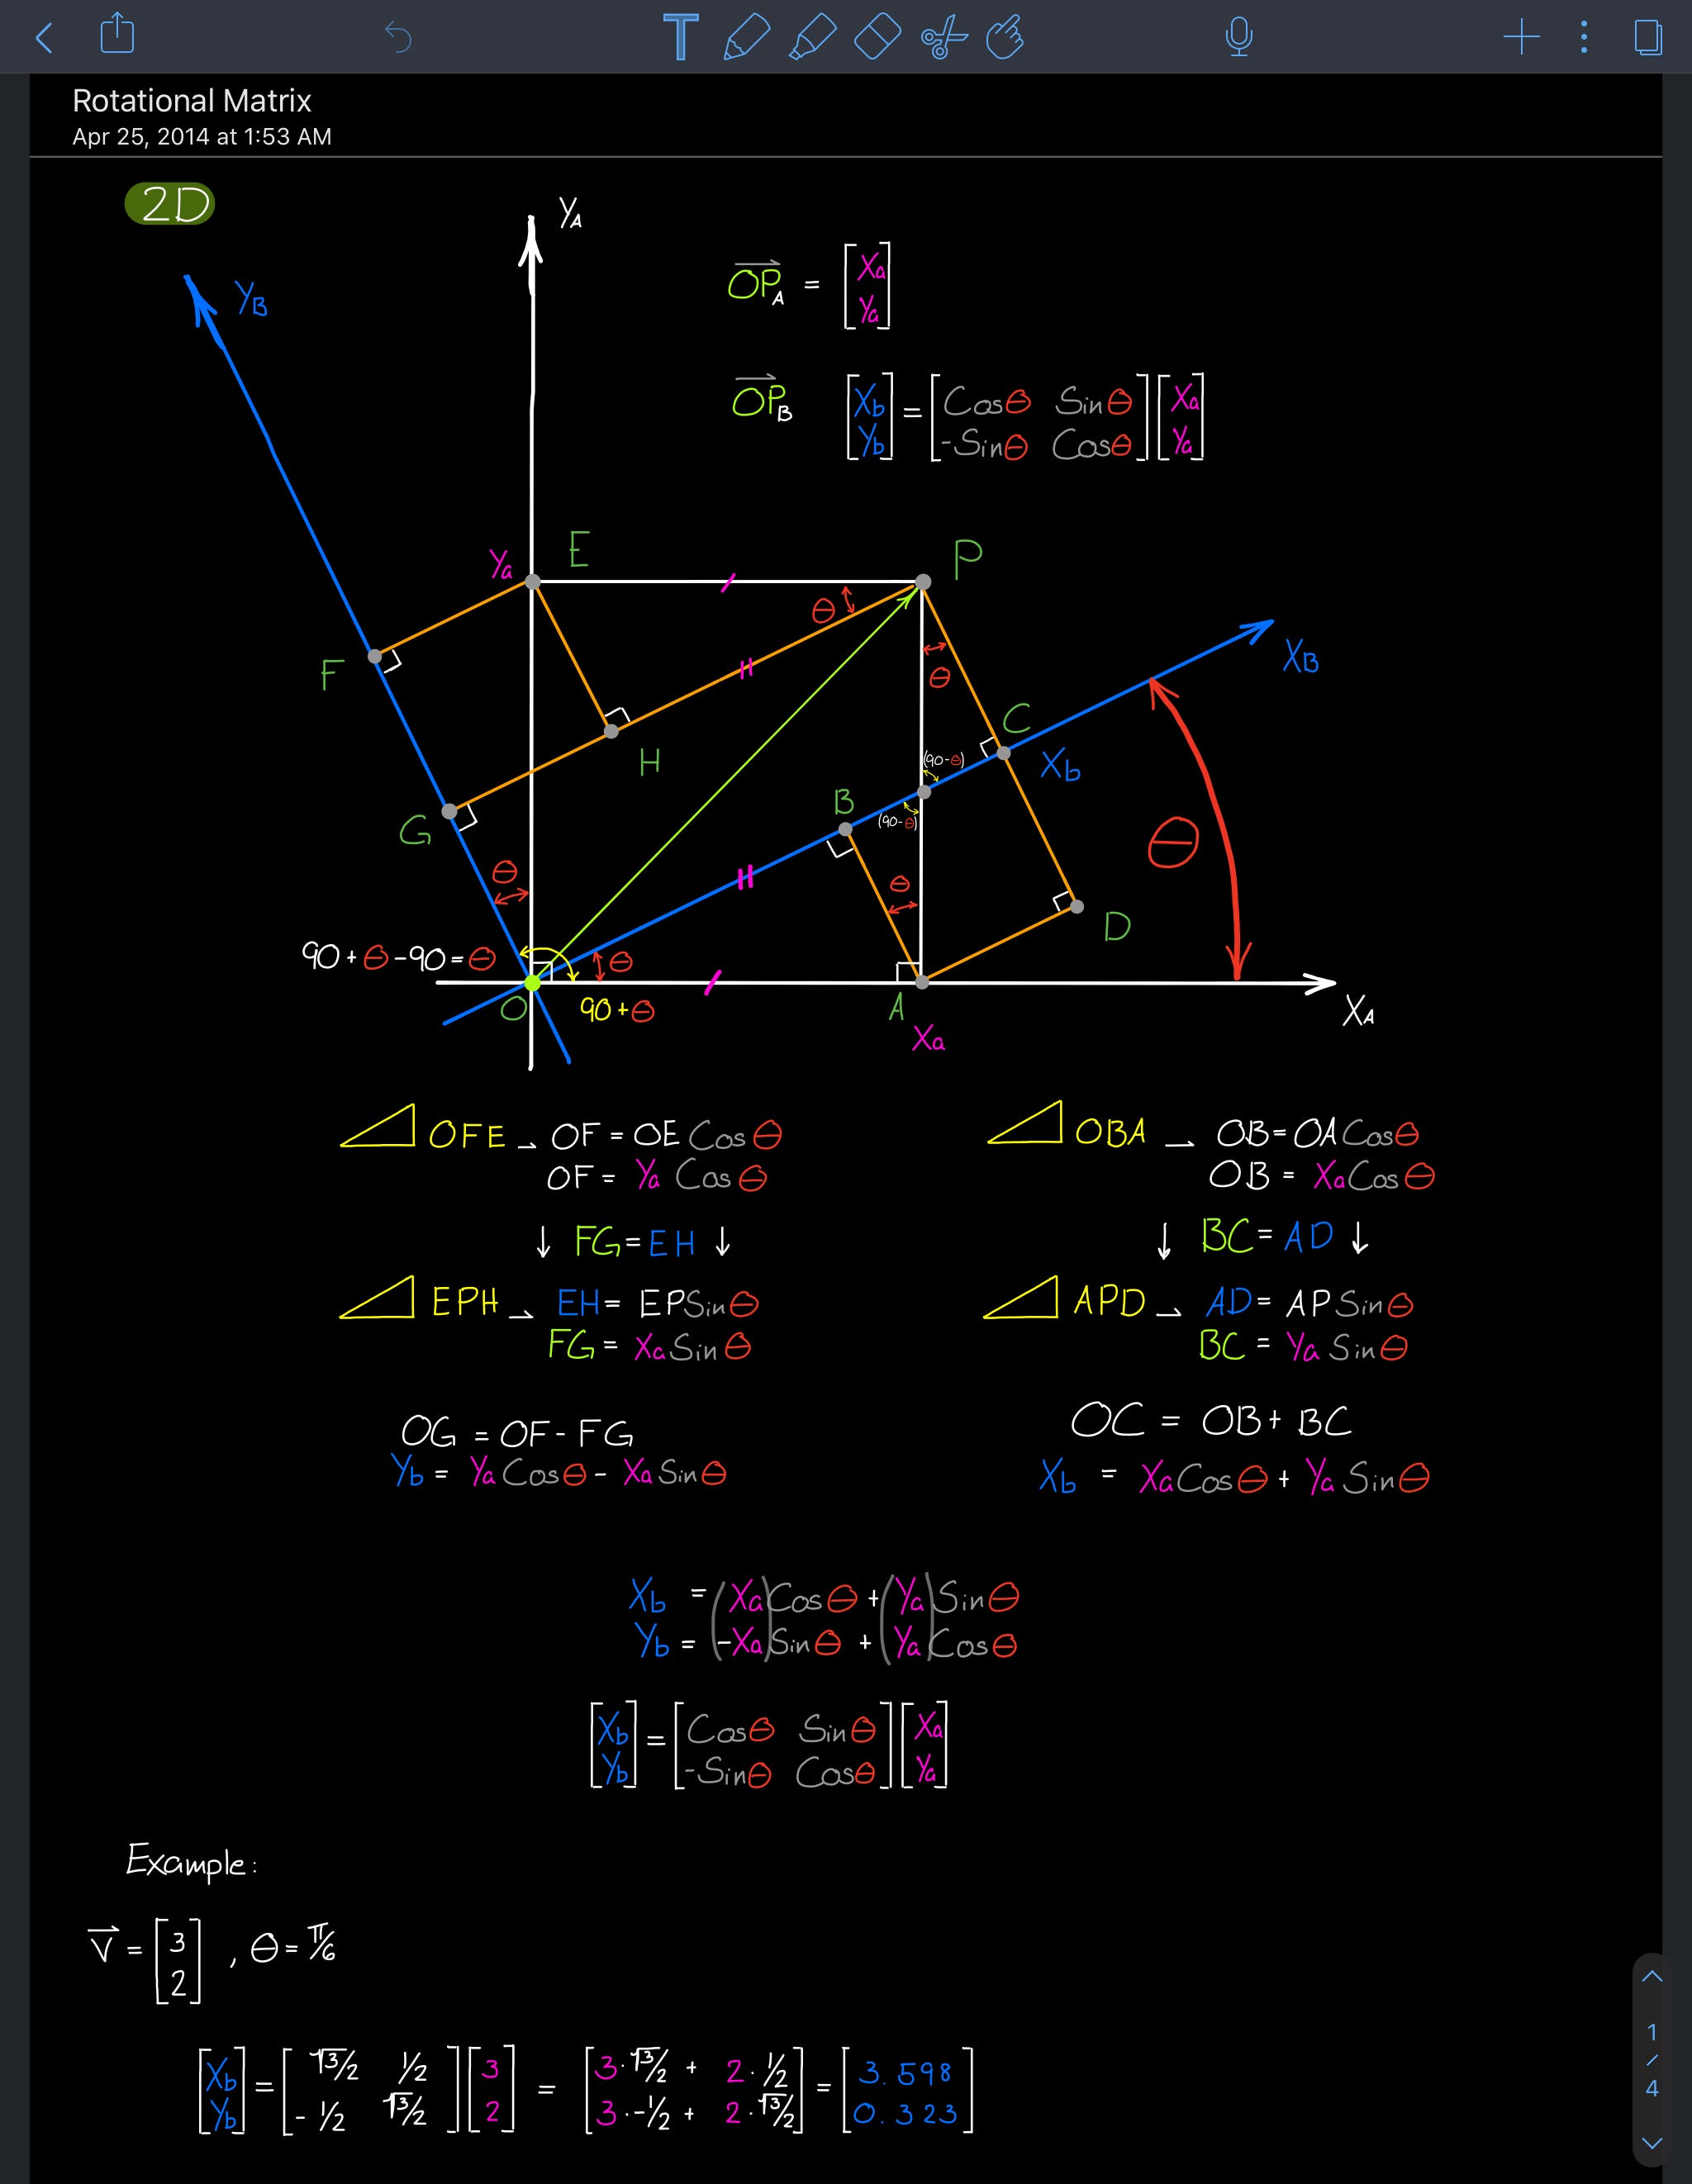 T
Rotational Matrix
Apr 25, 2014 at 1:53 AM
2D
YA
YB
OPA = [Xa Ya]
OPB [Xb Yb] = [Cosθ Sinθ -Sinθ Cosθ] [Xa Ya]
Ya E P
θ
F
θ
XB
H
C
Xb
(90-θ)
B
(90-θ)
G
θ
θ
θ
D
90+θ-90=θ
θ
O
90+θ
A
Xa
XA
OFE → OF = OE Cosθ
OF = Ya Cosθ
↓ FG = EH ↓
EPH → EH = EPSinθ
FG = XaSinθ
OG = OF - FG
Yb = YaCosθ - XaSinθ
OBA → OB = OACosθ
OB = XaCosθ
↓ BC = AD ↓
APD → AD = APSinθ
BC = Ya Sinθ
OC = OB + BC
Xb = XaCosθ + Ya Sinθ
Xb = (Xa)Cosθ + (Ya)Sinθ
Yb = (-Xa)Sinθ + (Ya)Cosθ
[Xb Yb] = [Cosθ Sinθ -Sinθ Cosθ] [Xa Ya]
Example:
V = [3 2], θ = π/6
[Xb Yb] = [√3/2 1/2 -1/2 √3/2] [3 2] = [3·√3/2 + 2·1/2 3·-1/2 + 2·√3/2] = [3.598 0.323]
1
/
4